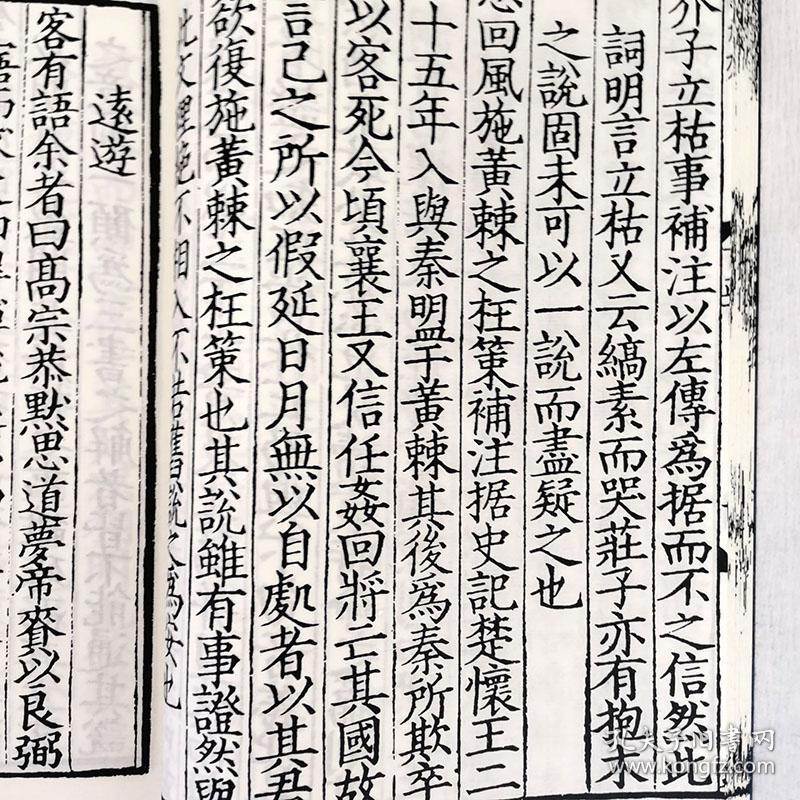 介子立枯事補注以左傳爲据而不之信然此
詞明言立枯又云縞素而哭莊子亦有抱木
之說固未可以一說而盡疑之也
悲回風施黃棘之枉策補注据史記楚懷王二
十五年入與秦盟于黃棘其後爲秦所欺卒
以客死今頃襄王又信任姦回將亡其國故
言己之所以假延日月無以自處者以其君
欲復施黃棘之枉策也其說雖有事證然與
此文理絶不相入不若舊說之爲安也
遠遊
客有語余者曰高宗恭默思道夢帝賚以良弼
孔夫子旧書网
www.kongfz.com